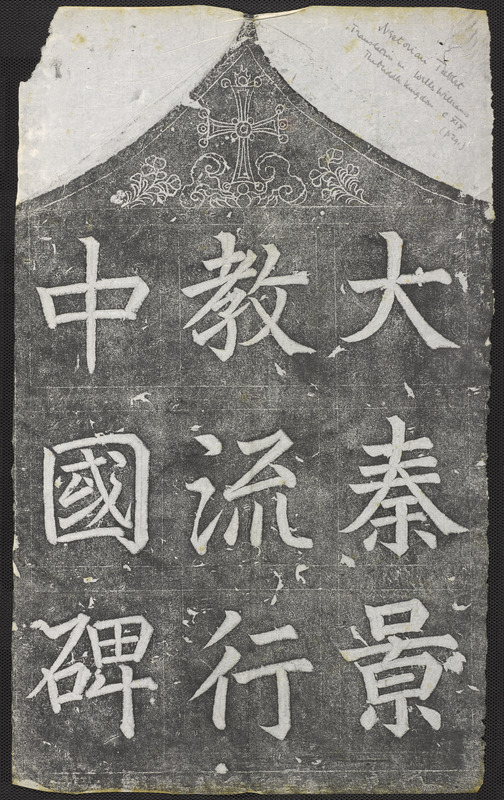 大秦景
教流行
中國碑
Nestorian Tablet
Translation in Wells Williams
Middle Kingdom